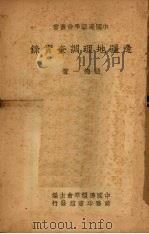 中國邊疆學會叢書
邊疆地理調查實錄
著
中國邊疆學會主編
商務印書館發行